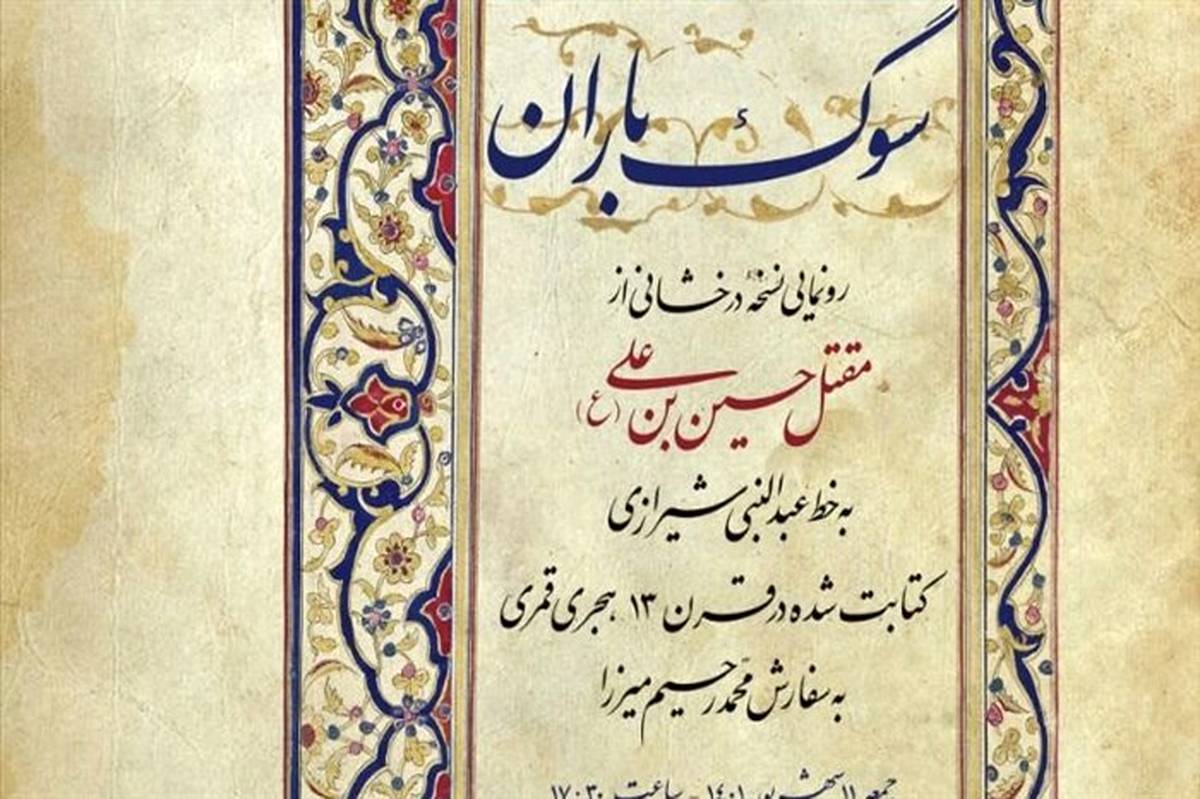 سوگ باران
رونمایی نسخهٔ درخشانی از
مقتل حسین بن علی (ع)
به خط عبدالنبی شیرازی
کتابت شده در قرن ۱۳ هجری قمری
به سفارش محمد رحیم میرزا
جمعه ۱۱ شهریور ۱۴۰۱ - ساعت ۱۷:۳۰